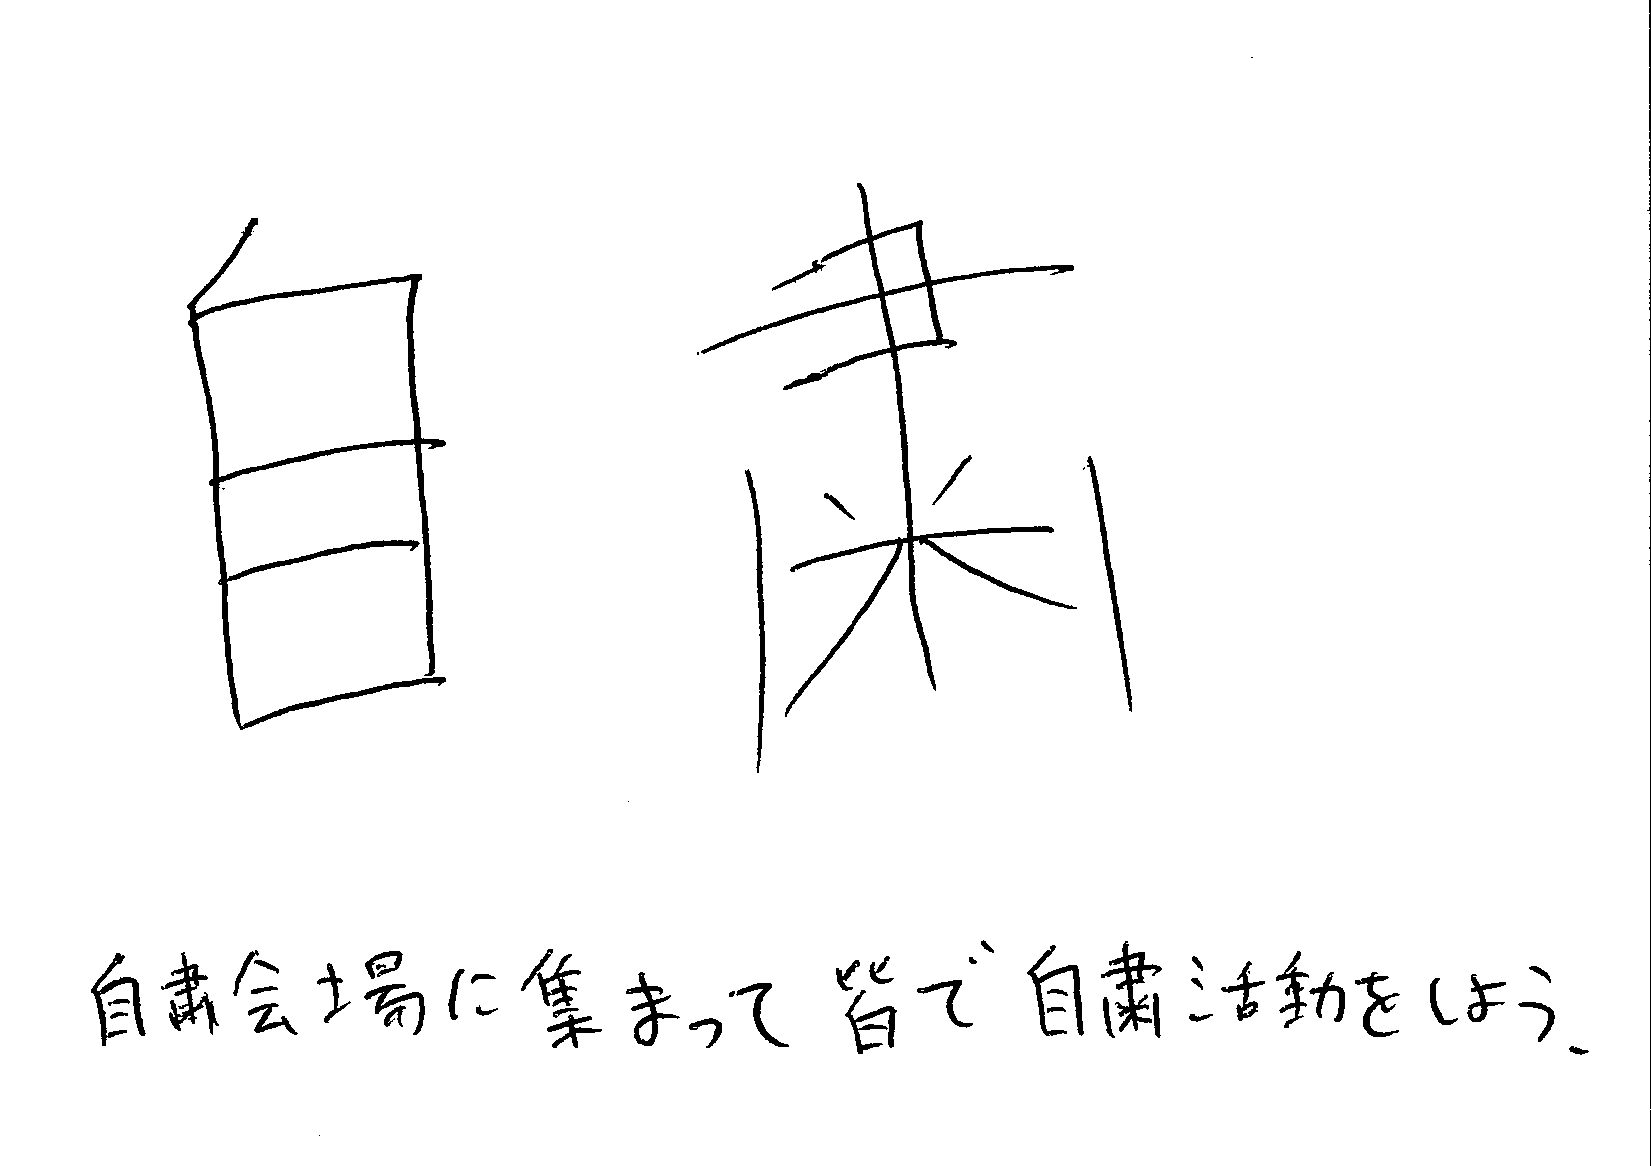 自粛
自粛会場に集まって皆で自粛活動をしよう.